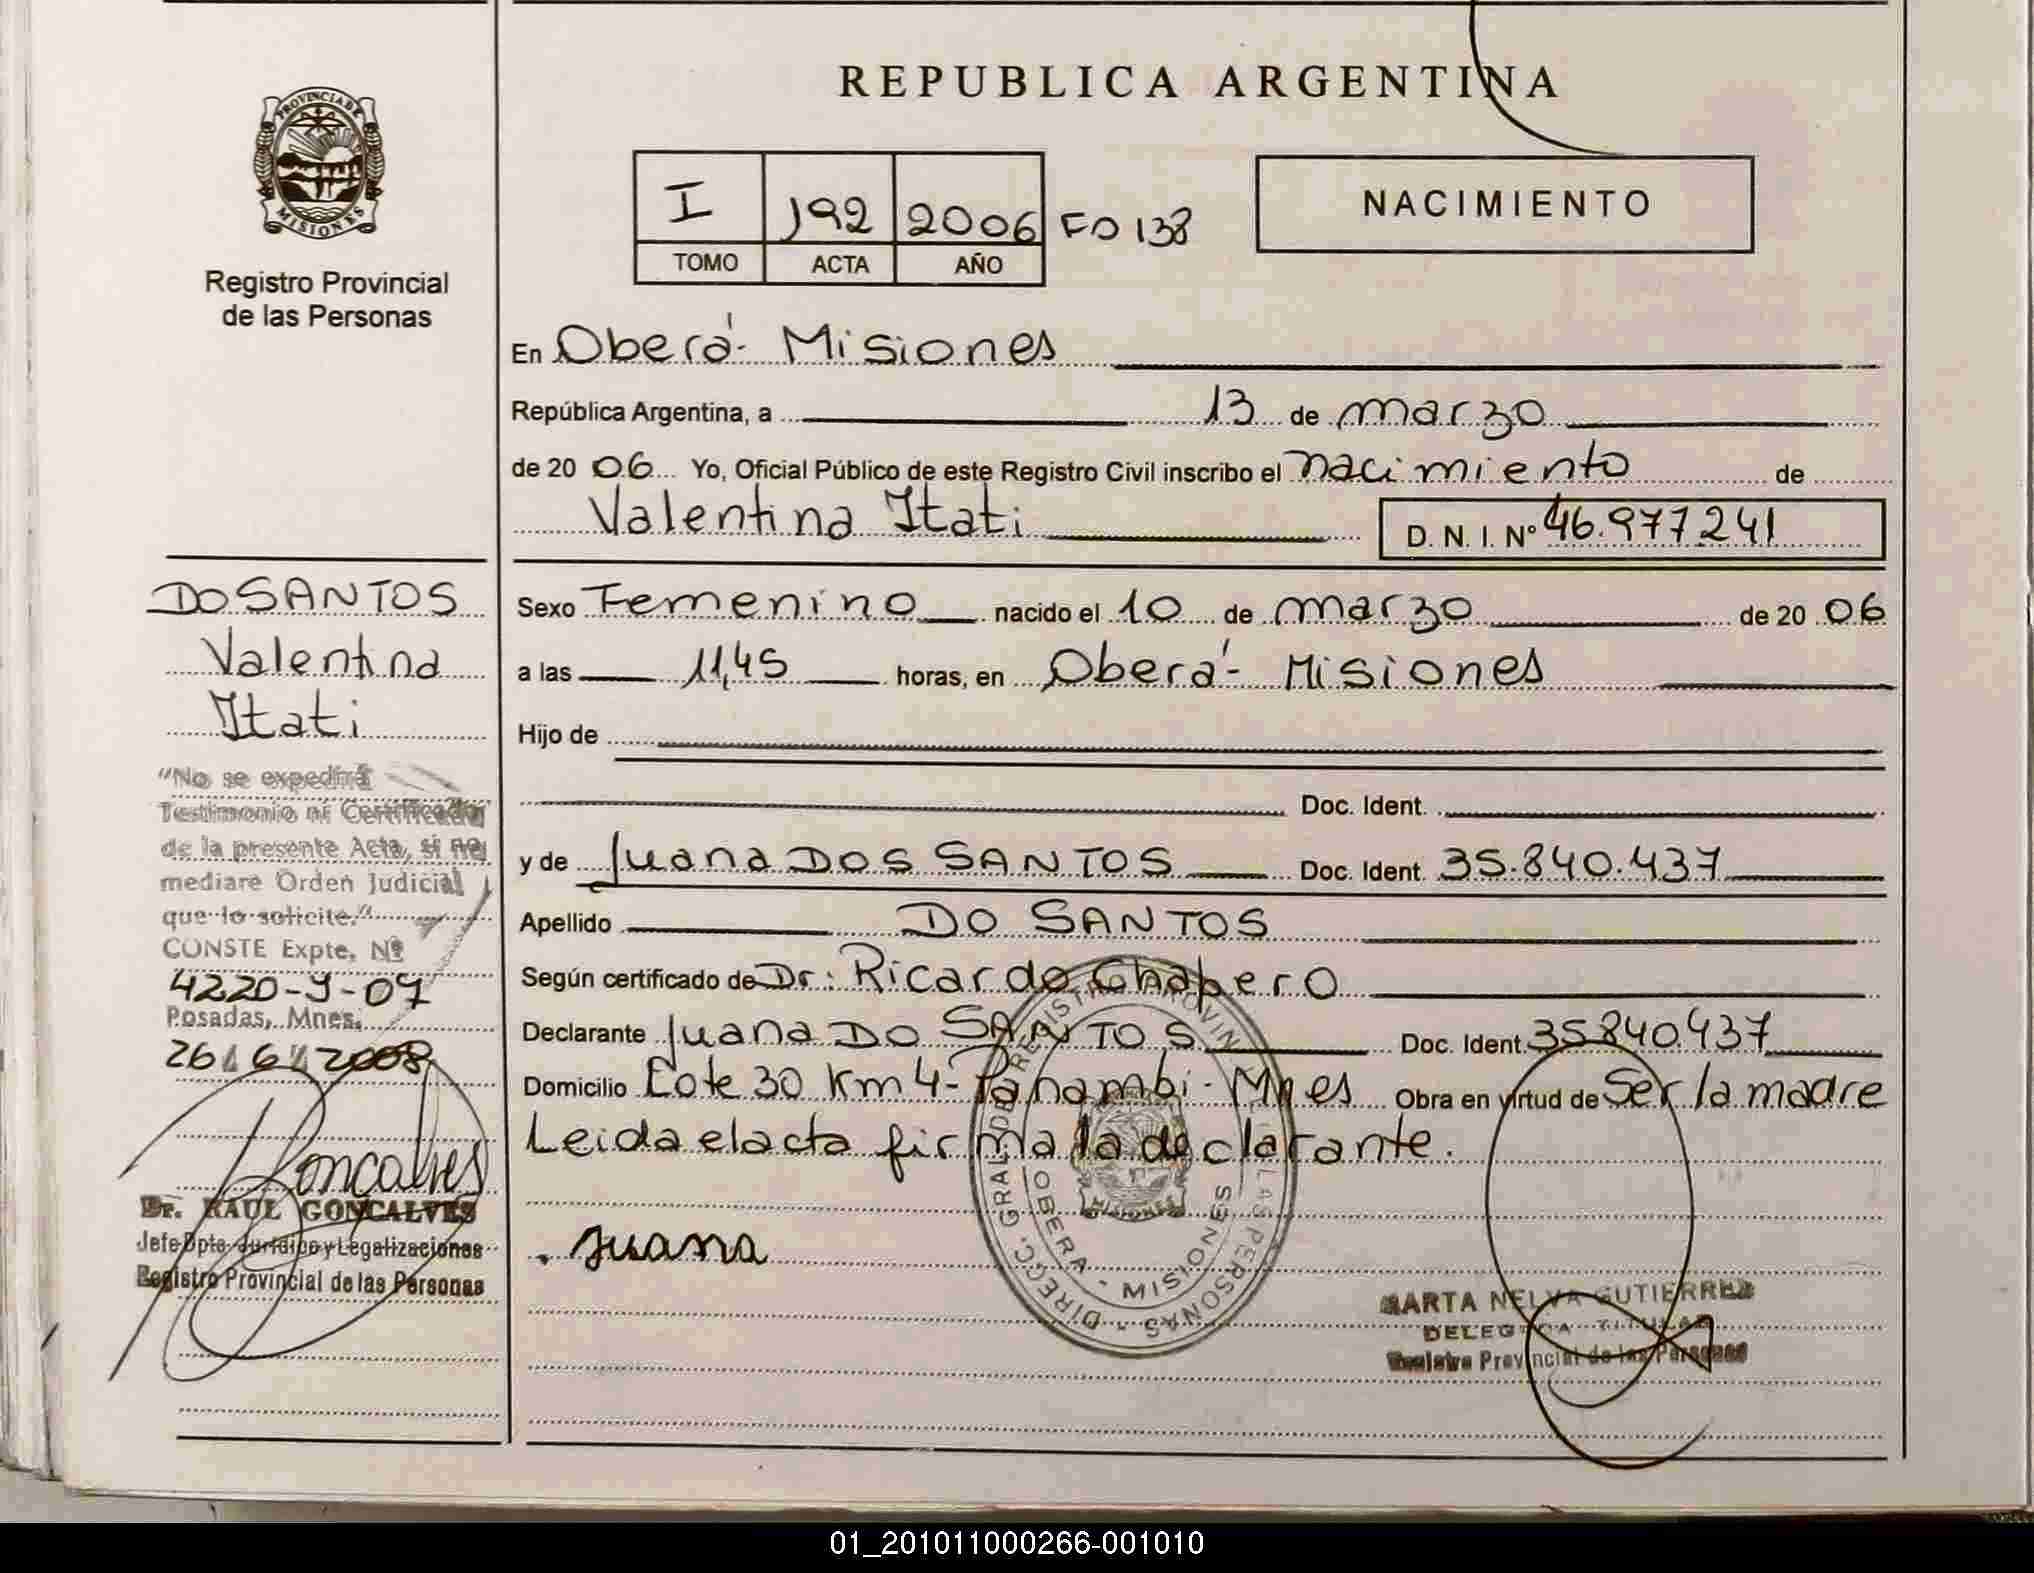 REPUBLICA ARGENTINA
PROVINCIA DE
MISIONES
Registro Provincial
de las Personas
I 192 2006 FO 138
TOMO ACTA AÑO
NACIMIENTO
En Oberá - Misiones
República Argentina, a 13 de marzo
de 20 06 Yo, Oficial Público de este Registro Civil inscribo el nacimiento de
Valentina Itati D. N. I. Nº 46.977241
Sexo Femenino nacido el 10 de marzo de 20 06
a las 11,45 horas, en Oberá - Misiones
Hijo de
Doc. Ident.
y de Juana DOS SANTOS Doc. Ident. 35.840.437
Apellido DO SANTOS
Según certificado de Dr: Ricardo Chapero
Declarante Juana DO SANTOS Doc. Ident. 35840437
Domicilio Lote 30 Km 4 - Panambi - Mnes Obra en virtud de Ser la madre
Leida el acta firma la declarante.
Juana
DIRECC. GRAL. DE REGISTRO PROVIN LAS PERSONAS
OBERA - MISIONES
MISIONES
MARTA NELVA GUTIERREZ
DELEGADA TITULAR
Registro Provincial de las Personas
DO SANTOS
Valentina
Itati
"No se expedirá
Testimonio ni Certificado
de la presente Acta, si no
mediare Orden Judicial
que lo solicite."
CONSTE Expte. Nº
4220-9-07
Posadas, Mnes.
26/6/2008
Goncalves
Dr. RAUL GONCALVES
Jefe Dpto. Jurídico y Legalizaciones
Registro Provincial de las Personas
01_201011000266-001010